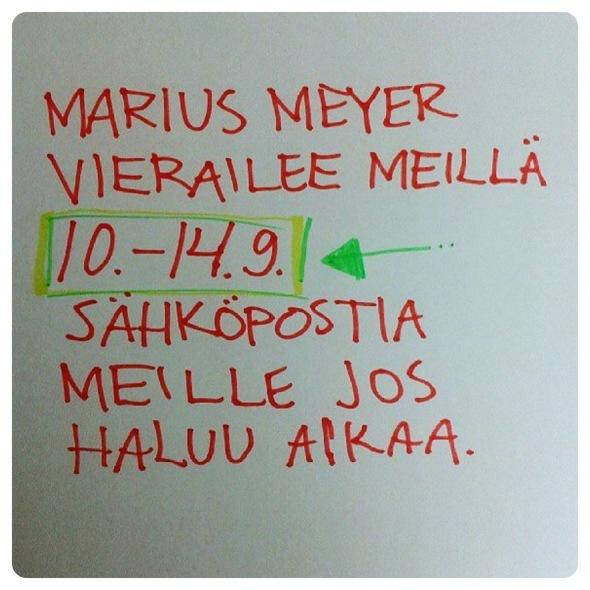 MARIUS MEYER
VIERAILEE MEILLÄ
10.–14.9.
SÄHKÖPOSTIA
MEILLE JOS
HALUU AIKAA.